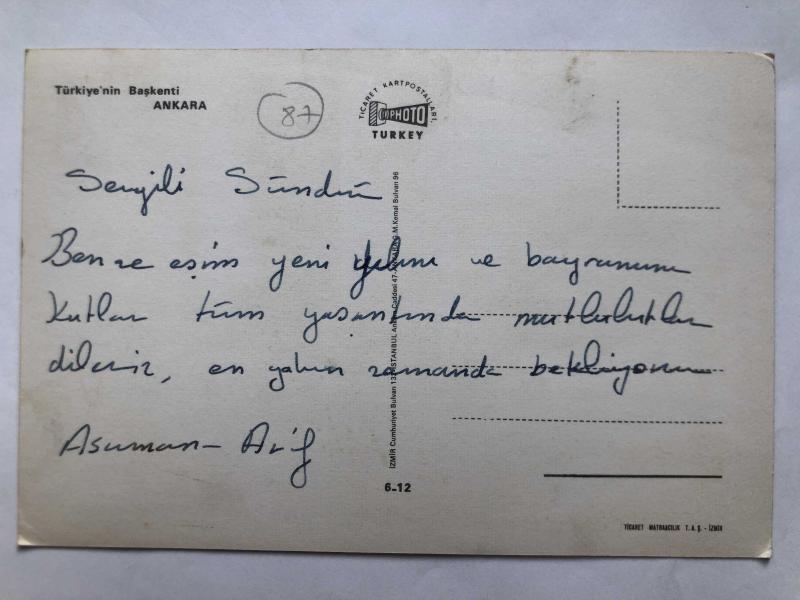 Türkiye'nin Başkenti
ANKARA
87
TİCARET KARTPOSTALLARI,
PHOTO
TURKEY
Sevgili Sündüü
Ben ve eşim yeni yılını ve bayramını
Kutlar tüm yaşantında mutluluklar
dileriz, en yakın zamanda bekliyorum
Asuman - Arif
İZMİR Cumhuriyet Bulvarı İSTANBUL Ankara Caddesi 47 - ANKARA G.M.Kemal Bulvarı 96
6-12
TİCARET MATBAACILIK T. A. Ş. - İZMİR